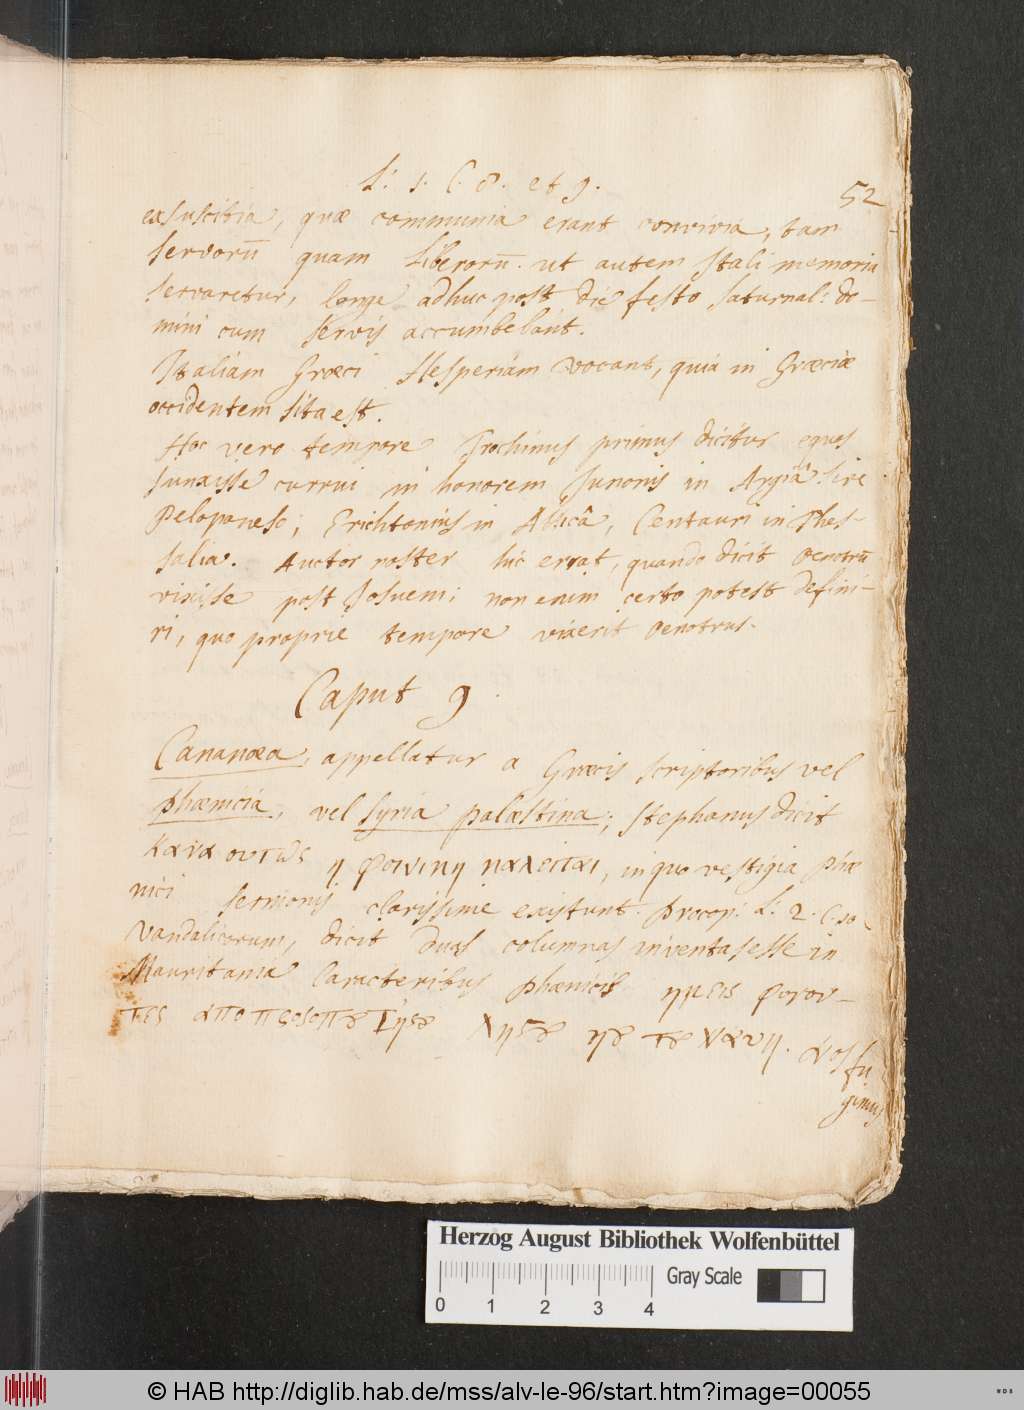 L: 1. C. 8. et 9.
52
exsuscitia, quæ communia erant convivia, tam
servorū quam Liberorū. ut autem Itali memoria
servaretur, longe adhuc post die festo saturnal: do-
mini cum servis accumbebant.
Italiam Græci Hesperiam vocant, quia in Græciæ
occidentem sita est.
Hoc vero tempore Trochinus primus dicitur equos
junxisse currui in honorem Junonis in Argiâ sive
Peloponeso; Erichtonius in Atticâ, Centauri in Thes-
salia. Auctor noster hic errat, quando dicit Oenotrū
vixisse post Josuem; non enim certo potest defini-
ri, quo proprie tempore vixerit Oenotrus.
Caput 9.
Cananæa, appellatur a Græcis scriptoribus vel
Phænicia, vel Syria palæstina; Stephanus dicit
κανα ουτως η φοινικη καλειται, in quo vestigia Phæ
nici sermonis clarissime existunt. Procop: L. 2. C. 10
Vandalicorum, dicit duas columnas inventas esse in
Mauritania Caracteribus phænicis ημεις φογου-
τες απο προσοπȣ Ιησȣ ληςȣ ηȣ τȣ Ναυη. nos fu
gimus
Herzog August Bibliothek Wolfenbüttel
Gray Scale
0 1 2 3 4
© HAB http://diglib.hab.de/mss/alv-le-96/start.htm?image=00055